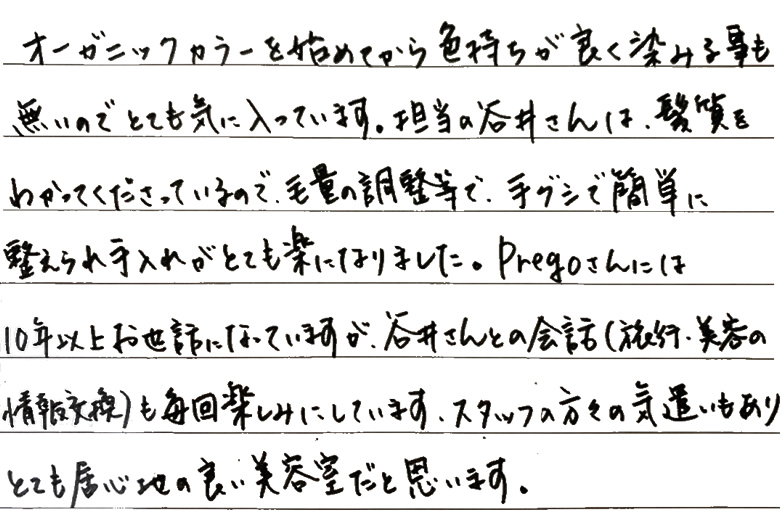 オーガニックカラーを始めてから色持ちが良く染みる事も
無いのでとても気に入っています。担当の谷井さんは、髪質を
わかってくださっているので、毛量の調整等で、手グシで簡単に
整えられ手入れがとても楽になりました。Pregoさんには
10年以上お世話になっていますが、谷井さんとの会話(旅行・美容の
情報交換)も毎回楽しみにしています、スタッフの方々の気遣いもあり
とても居心地の良い美容室だと思います。